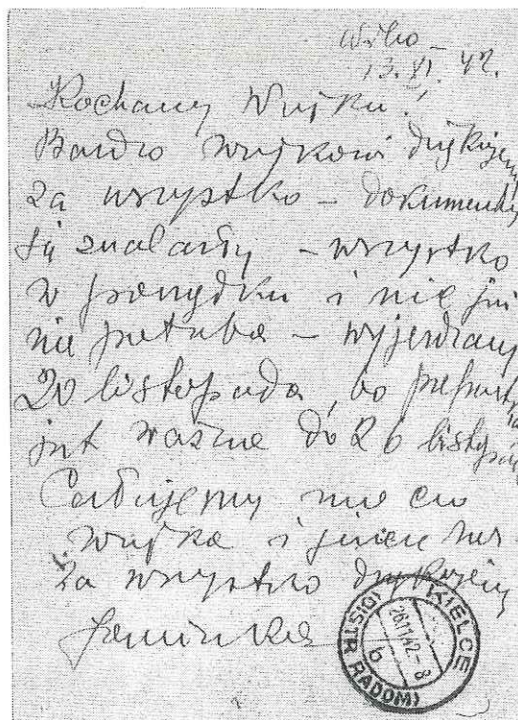 Wilno –
13. XI. 42.
Kochany Wujku!
Bardzo Wujkowi dziękujemy
za wszystko – dokumenty
się znalazły – wszystko
w porządku i nic już
nie potrzeba – wyjeżdżamy
20 listopada, bo
jest ważne do 26 listopada
Całujemy
Wujka i jeszcze raz
za wszystko dziękujemy
Janinka
KIELCE
(DISTR. RADOM)
26.11.42.-8
b